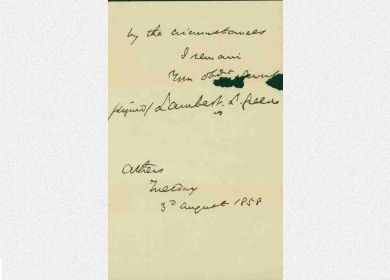 by the circumstances
I remain
Your obdt
signed/ Lambert.
Athens
Tuesday
3d August 1858